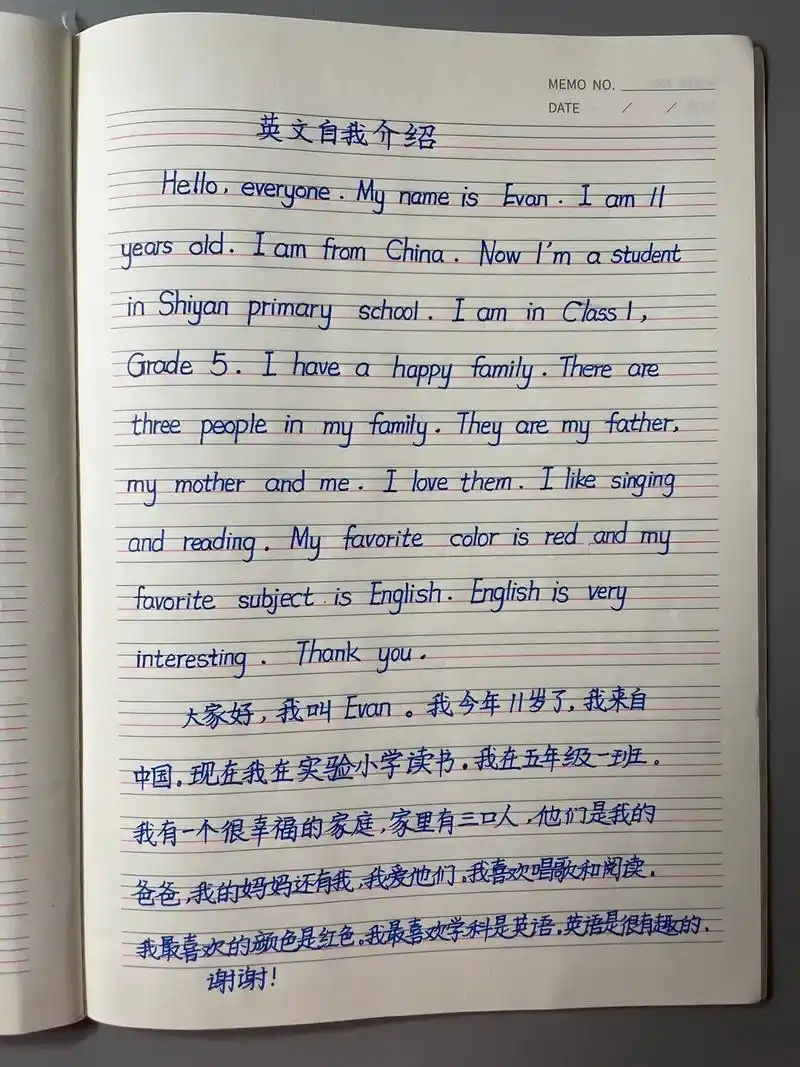 MEMO NO.
DATE / /
英文自我介绍
Hello, everyone. My name is Evan. I am 11
years old. I am from China. Now I'm a student
in Shiyan primary school. I am in Class 1,
Grade 5. I have a happy family. There are
three people in my family. They are my father,
my mother and me. I love them. I like singing
and reading. My favorite color is red and my
favorite subject is English. English is very
interesting. Thank you.
大家好，我叫Evan。我今年11岁了，我来自
中国。现在我在实验小学读书。我在五年级一班。
我有一个很幸福的家庭，家里有三口人，他们是我的
爸爸，我的妈妈还有我，我爱他们。我喜欢唱歌和阅读。
我最喜欢的颜色是红色。我最喜欢学科是英语。英语是很有趣的。
谢谢！